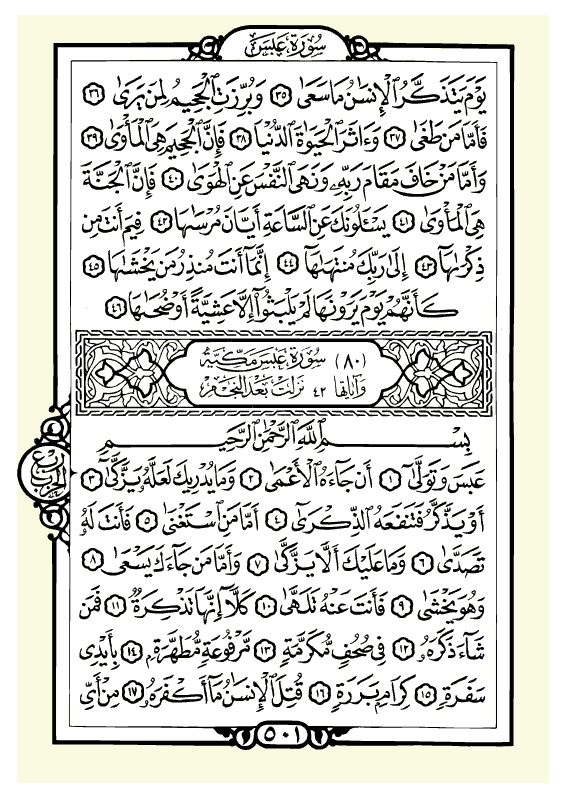 سُورَةُ عَبَسَ
يَوْمَ يَتَذَكَّرُ ٱلْإِنسَٰنُ مَا سَعَىٰ ٣٥ وَبُرِّزَتِ ٱلْجَحِيمُ لِمَن يَرَىٰ ٣٦
فَأَمَّا مَن طَغَىٰ ٣٧ وَءَاثَرَ ٱلْحَيَوٰةَ ٱلدُّنْيَا ٣٨ فَإِنَّ ٱلْجَحِيمَ هِىَ ٱلْمَأْوَىٰ ٣٩
وَأَمَّا مَنْ خَافَ مَقَامَ رَبِّهِۦ وَنَهَى ٱلنَّفْسَ عَنِ ٱلْهَوَىٰ ٤٠ فَإِنَّ ٱلْجَنَّةَ
هِىَ ٱلْمَأْوَىٰ ٤١ يَسْـَٔلُونَكَ عَنِ ٱلسَّاعَةِ أَيَّانَ مُرْسَىٰهَا ٤٢ فِيمَ أَنتَ مِن
ذِكْرَىٰهَآ ٤٣ إِلَىٰ رَبِّكَ مُنتَهَىٰهَآ ٤٤ إِنَّمَآ أَنتَ مُنذِرُ مَن يَخْشَىٰهَا ٤٥
كَأَنَّهُمْ يَوْمَ يَرَوْنَهَا لَمْ يَلْبَثُوٓا۟ إِلَّا عَشِيَّةً أَوْ ضُحَىٰهَا ٤٦
(٨٠) سُورَةُ عَبَسَ مَكِّيَّة
وَآيَاتُهَا ٤٢ نَزَلَتْ بَعْدَ النَّجْمِ
بِسْمِ ٱللَّهِ ٱلرَّحْمَٰنِ ٱلرَّحِيمِ
عَبَسَ وَتَوَلَّىٰٓ ١ أَن جَآءَهُ ٱلْأَعْمَىٰ ٢ وَمَا يُدْرِيكَ لَعَلَّهُۥ يَزَّكَّىٰٓ ٣
أَوْ يَذَّكَّرُ فَتَنفَعَهُ ٱلذِّكْرَىٰٓ ٤ أَمَّا مَنِ ٱسْتَغْنَىٰ ٥ فَأَنتَ لَهُۥ
تَصَدَّىٰ ٦ وَمَا عَلَيْكَ أَلَّا يَزَّكَّىٰ ٧ وَأَمَّا مَن جَآءَكَ يَسْعَىٰ ٨
وَهُوَ يَخْشَىٰ ٩ فَأَنتَ عَنْهُ تَلَهَّىٰ ١٠ كَلَّآ إِنَّهَا تَذْكِرَةٌ ١١ فَمَن
شَآءَ ذَكَرَهُۥ ١٢ فِى صُحُفٍ مُّكَرَّمَةٍ ١٣ مَّرْفُوعَةٍ مُّطَهَّرَةٍۭ ١٤ بِأَيْدِى
سَفَرَةٍ ١٥ كِرَامٍۭ بَرَرَةٍ ١٦ قُتِلَ ٱلْإِنسَٰنُ مَآ أَكْفَرَهُۥ ١٧ مِنْ أَىِّ
رُبْع
الحزب
٥٠١